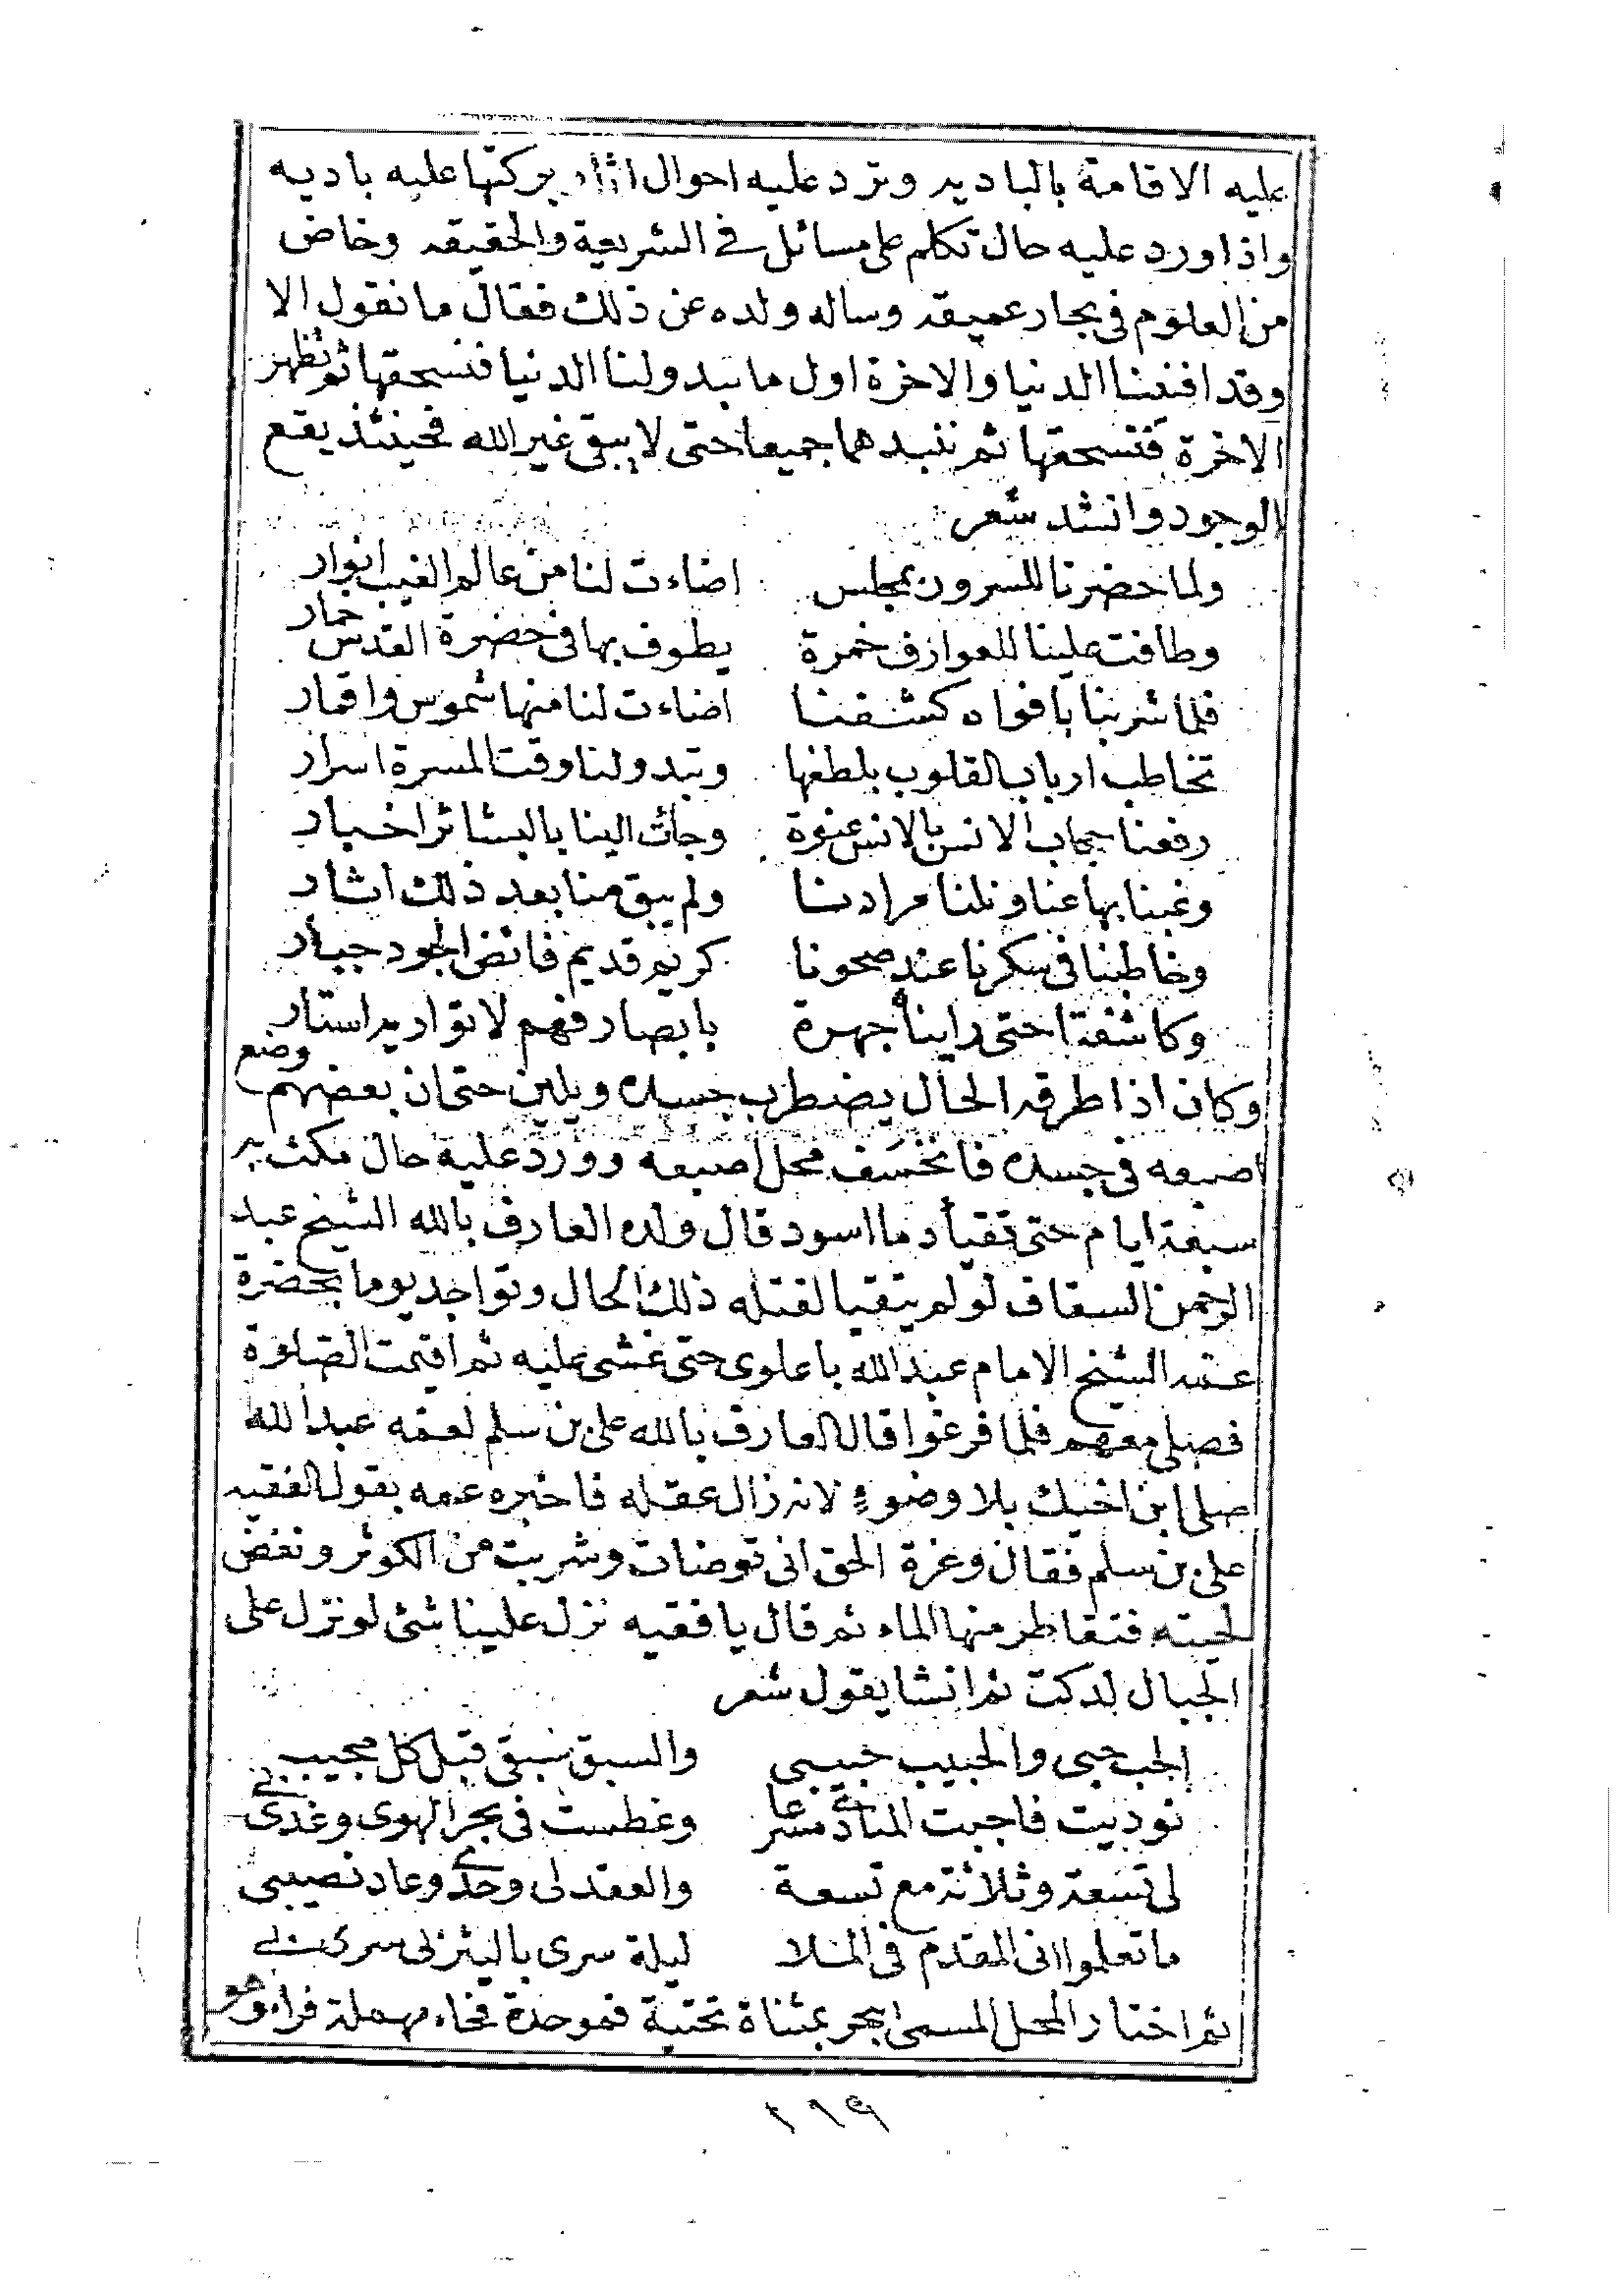 عليه الاقامة بالباديه وترد عليه احوال اثار بركتها عليه باديه
واذا ورد عليه حال تكلم على مسائل في الشريعة والحقيقه وخاض
من العلوم في بحار عميقه وساله ولده عن ذلك فقال ما نقول الا
وقد افنينا الدنيا والاخرة اول ما تبدو لنا الدنيا فنسحقها ثم تظهر
الاخرة فنسحقها ثم ننبدهما جميعا حتى لا يبقى غير الله فحينئذ يقع
الوجود وانشد شعر
ولما حضرنا للسرور بمجلس اضاءت لنا من عالم الغيب انوار
وطافت علينا للعوارف خمرة يطوف بها في حضرة القدس خمار
فلما شربنا بافواه كشفنا اضاءت لنا منها شموس واقمار
تخاطب ارباب القلوب بلطفها وتبدو لنا وقت المسرة اسرار
رفعنا حجاب الانس بالانس عنوة وجأت الينا بالبشائر اخبار
وغبنا بها عنا ونلنا مرادنا ولم يبق منا بعد ذلك اثار
وخاطبنا في سكرنا عند صحونا كريم قديم فائض الجود جبار
وكاشفنا حتى رايناه جهرة بابصار فهم لا تواريه استار
وكان اذا طرقه الحال يضطرب جسده ويلين حتى ان بعضهم وضع
اصبعه في جسده فانخسف محل اصبعه وورد عليه حال مكث به
سبعة ايام حتى تقيأ دما اسود قال ولده العارف بالله الشيخ عبد
الرحمن السقاف لو لم يتقيا لقتله ذلك الحال وتواجد يوما بحضرة
عمه الشيخ الامام عبد الله باعلوى حتى غشى عليه ثم اقيمت الصلوة
فصلى معهم فلما فرغوا قال العارف بالله على بن سلم لعمه عبد الله
صلى ابن اخيك بلا وضوء لانه زال عقله فاخبره عمه بقول الفقيه
على بن سلم فقال وعزة الحق انى توضات وشربت من الكوثر ونفض
لحيته فتقاطر منها الماء ثم قال يا فقيه نزل علينا شئ لو نزل على
الجبال لدكت ثم انشا يقول شعر
الحب حبى والحبيب حبيبى والسبق سبقى قبل كل مجيب
نوديت فاجبت المنادى مسرعا وغطست في بحر الهوى وغدى بي
لى تسعة وثلاثة مع تسعة والعقد لى وحدى وعاد نصيبى
ما تعلموا انى المقدم في الملا ليلة سرى باليثربى سرى بي
ثم اختار المحل المسمى يبحر بمثناة تحتية فموحدة فحاء مهملة فراء وهو
٢١٩